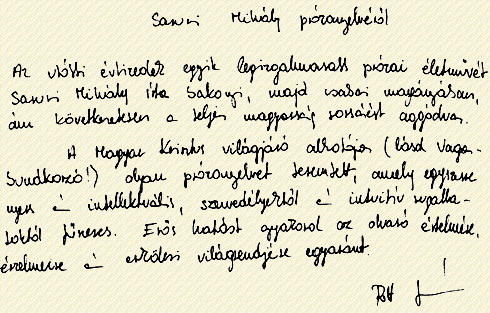 Sarusi Mihály prózanyelvéről
Az utóbbi évtizedek egyik legizgalmasabb prózai életművét
Sarusi Mihály írta bakonyi, majd csabai magányában,
ám következetesen a teljes magyarság sorsáért aggódva.
A Magyar Krisztus világjáró alkotója (lásd Vaga-
bundkorzó!) olyan prózanyelvet teremtett, amely egyszerre
nyers és intellektuális, szenvedélyektől és intuitív
tüneses. Erős hatást gyakorol az olvasó értelmére,
érzelmeire és erkölcsi világrendjére egyaránt.